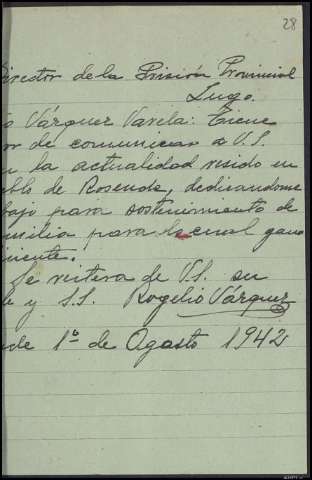 28
Director de la Prisión Provincial
Lugo.
o Vázquez Varela: Tiene
or de comunicar a V.S.
n la actualidad resido en
eblo de Rosende, dedicandome
bajo para sostenimiento de
milia para la cual gano
iciente.
Se reitera de V.S. su
e y S.S. Rogelio Vázquez
nde 1º de Agosto 1942